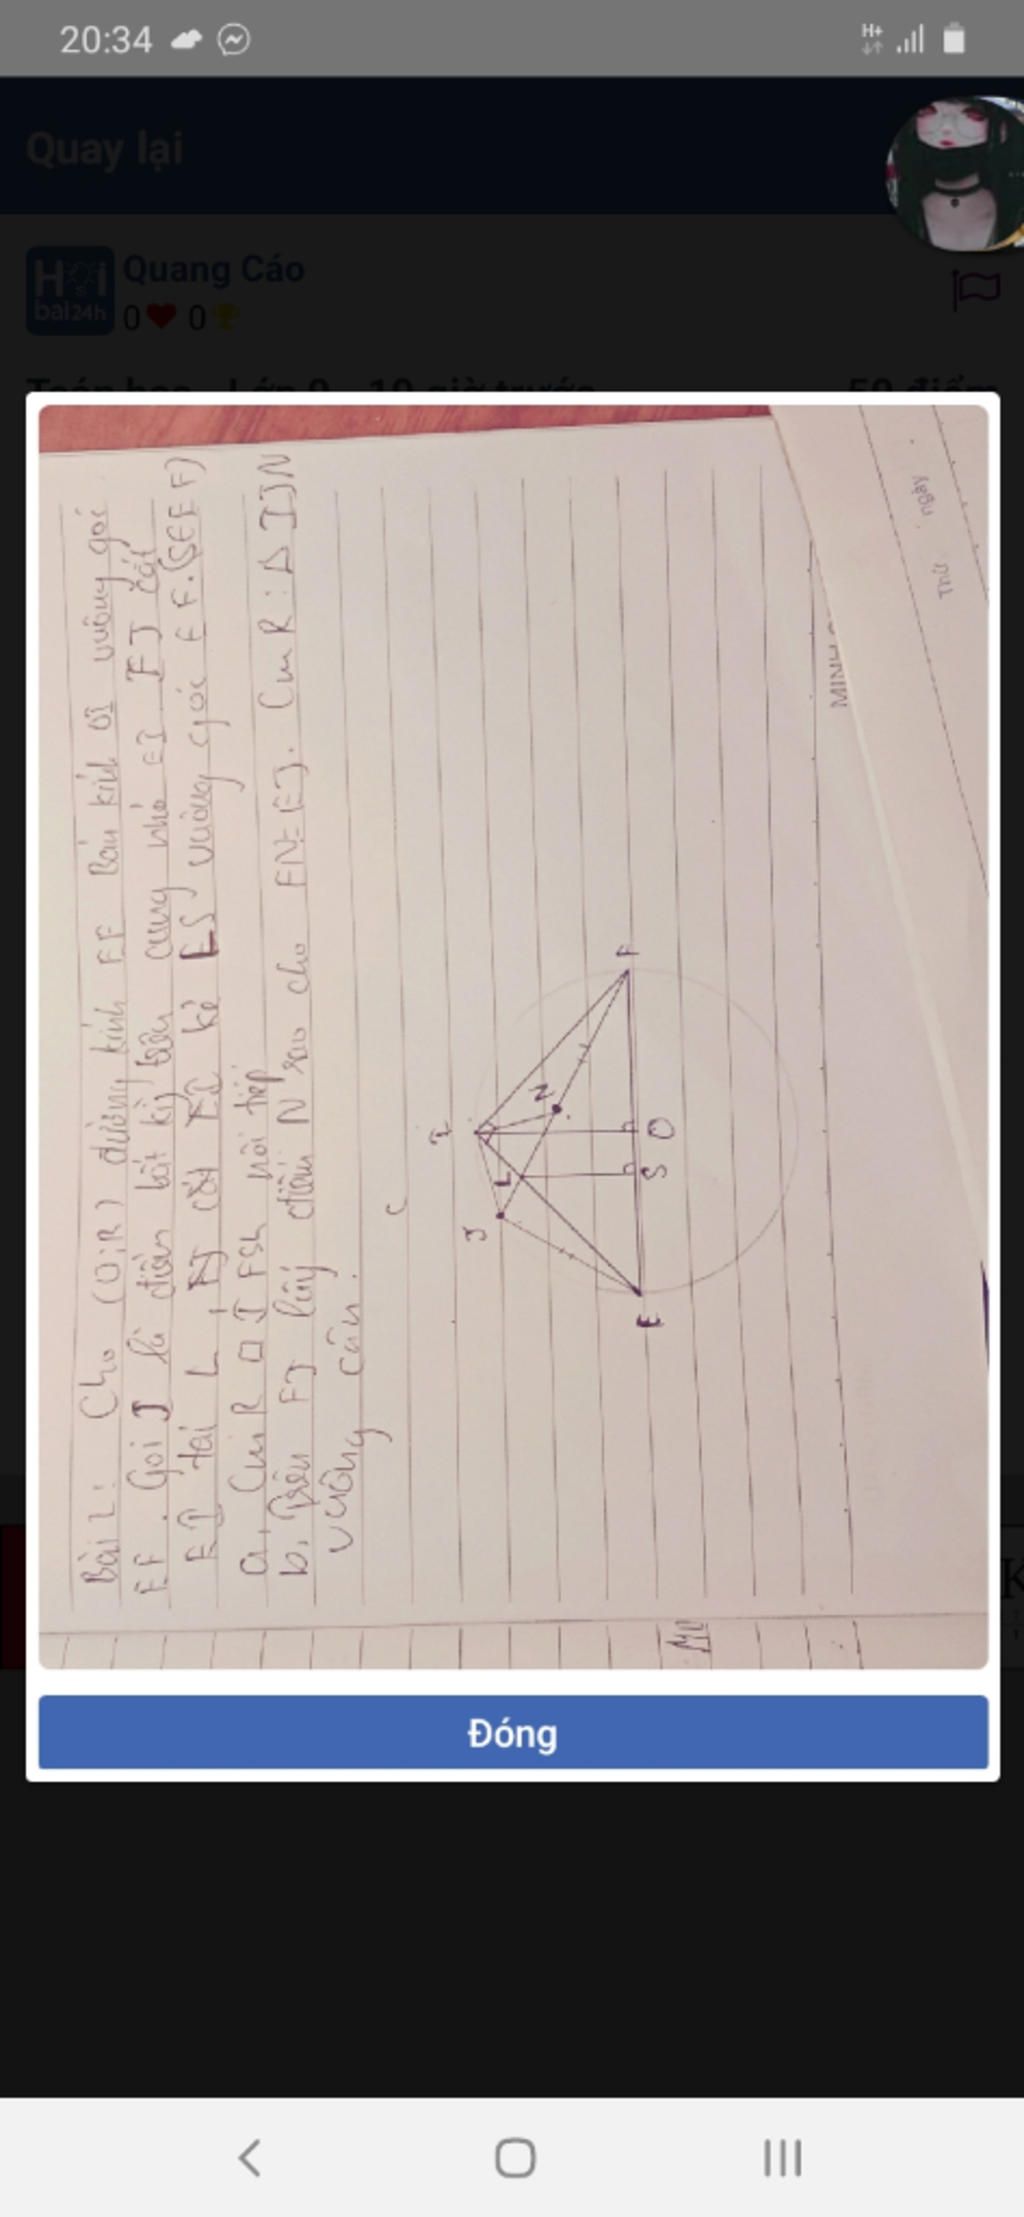 20:34
H+
Quay lại
H i
bai24h
Quang Cáo
0 0
Toán học - Lớp 9 - 10 giờ trước
50 điểm
Bài 2: Cho (O;R) đường kính EF Bán kính OI vuông góc
EF. Gọi J là điểm bất kỳ trên cung nhỏ EI FJ cắt
EI tại L, kẻ LS vuông góc EF. (S∈EF)
a, CmR □ IFSL nội tiếp
b, Trên FJ lấy điểm N sao cho FN=EJ. CmR: Δ IJN
vuông cân.
I
J
L
N
E
S
O
F
Thứ ngày
MINH
Đóng